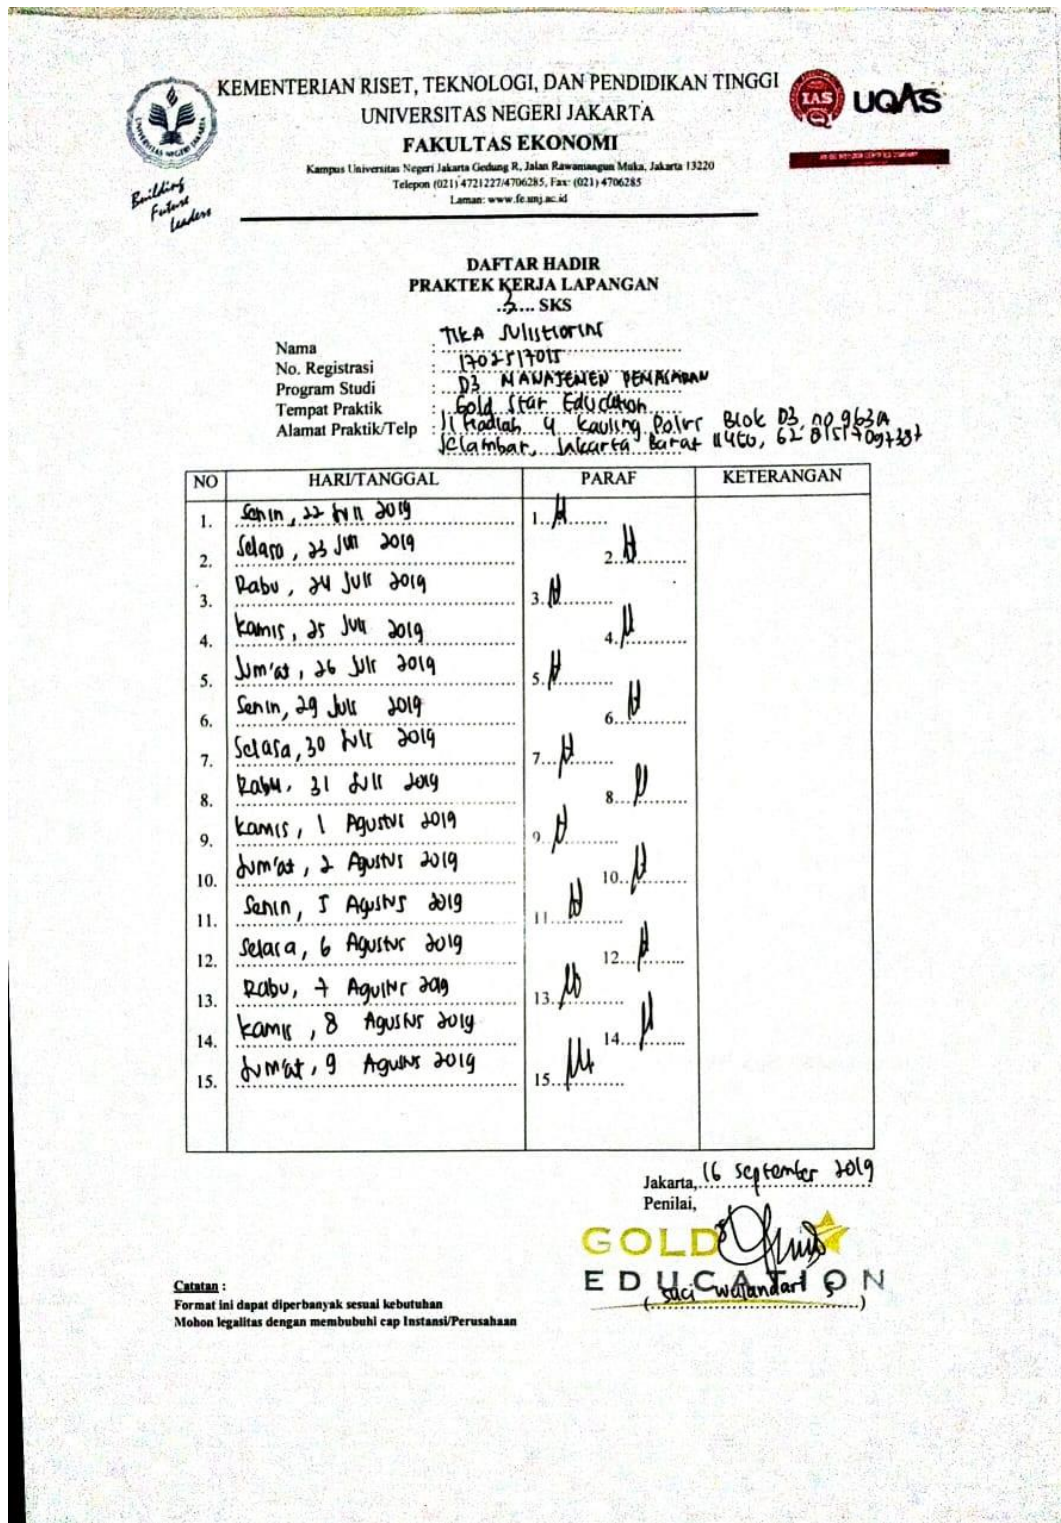 KEMENTERIAN RISET, TEKNOLOGI, DAN PENDIDIKAN TINGGI
UNIVERSITAS NEGERI JAKARTA
FAKULTAS EKONOMI
Kampus Universitas Negeri Jakarta Gedung R, Jalan Rawamangun Muka, Jakarta 13220
Telepon (021) 4721227/4706285, Fax: (021) 4706285
Laman: www.fe.unj.ac.id
Building
Future
Leaders
IAS
UQAS
DAFTAR HADIR
PRAKTEK KERJA LAPANGAN
..2.... SKS
Nama : Tika Sulistiorini
No. Registrasi : 1702517015
Program Studi : D3 MANAJEMEN PEMASARAN
Tempat Praktik : Gold Star Education
Alamat Praktik/Telp : Jl Hadiah 4 Kavling Polri Blok D3, no 963A
Jelambar, Jakarta Barat 11460,
NO HARI/TANGGAL PARAF KETERANGAN
1. Senin, 22 Juli 2019 1.
2. Selasa, 23 Juli 2019 2.
3. Rabu, 24 Juli 2019 3.
4. Kamis, 25 Juli 2019 4.
5. Jum'at, 26 Juli 2019 5.
6. Senin, 29 Juli 2019 6.
7. Selasa, 30 Juli 2019 7.
8. Rabu, 31 Juli 2019 8.
9. Kamis, 1 Agustus 2019 9.
10. Jum'at, 2 Agustus 2019 10.
11. Senin, 5 Agustus 2019 11.
12. Selasa, 6 Agustus 2019 12.
13. Rabu, 7 Agustus 2019 13.
14. Kamis, 8 Agustus 2019 14.
15. Jum'at, 9 Agustus 2019 15.
Jakarta, 16 September 2019
Penilai,
GOLD
EDUCATION
(Suci Wulandari S)
Catatan :
Format ini dapat diperbanyak sesuai kebutuhan
Mohon legalitas dengan membubuhi cap Instansi/Perusahaan